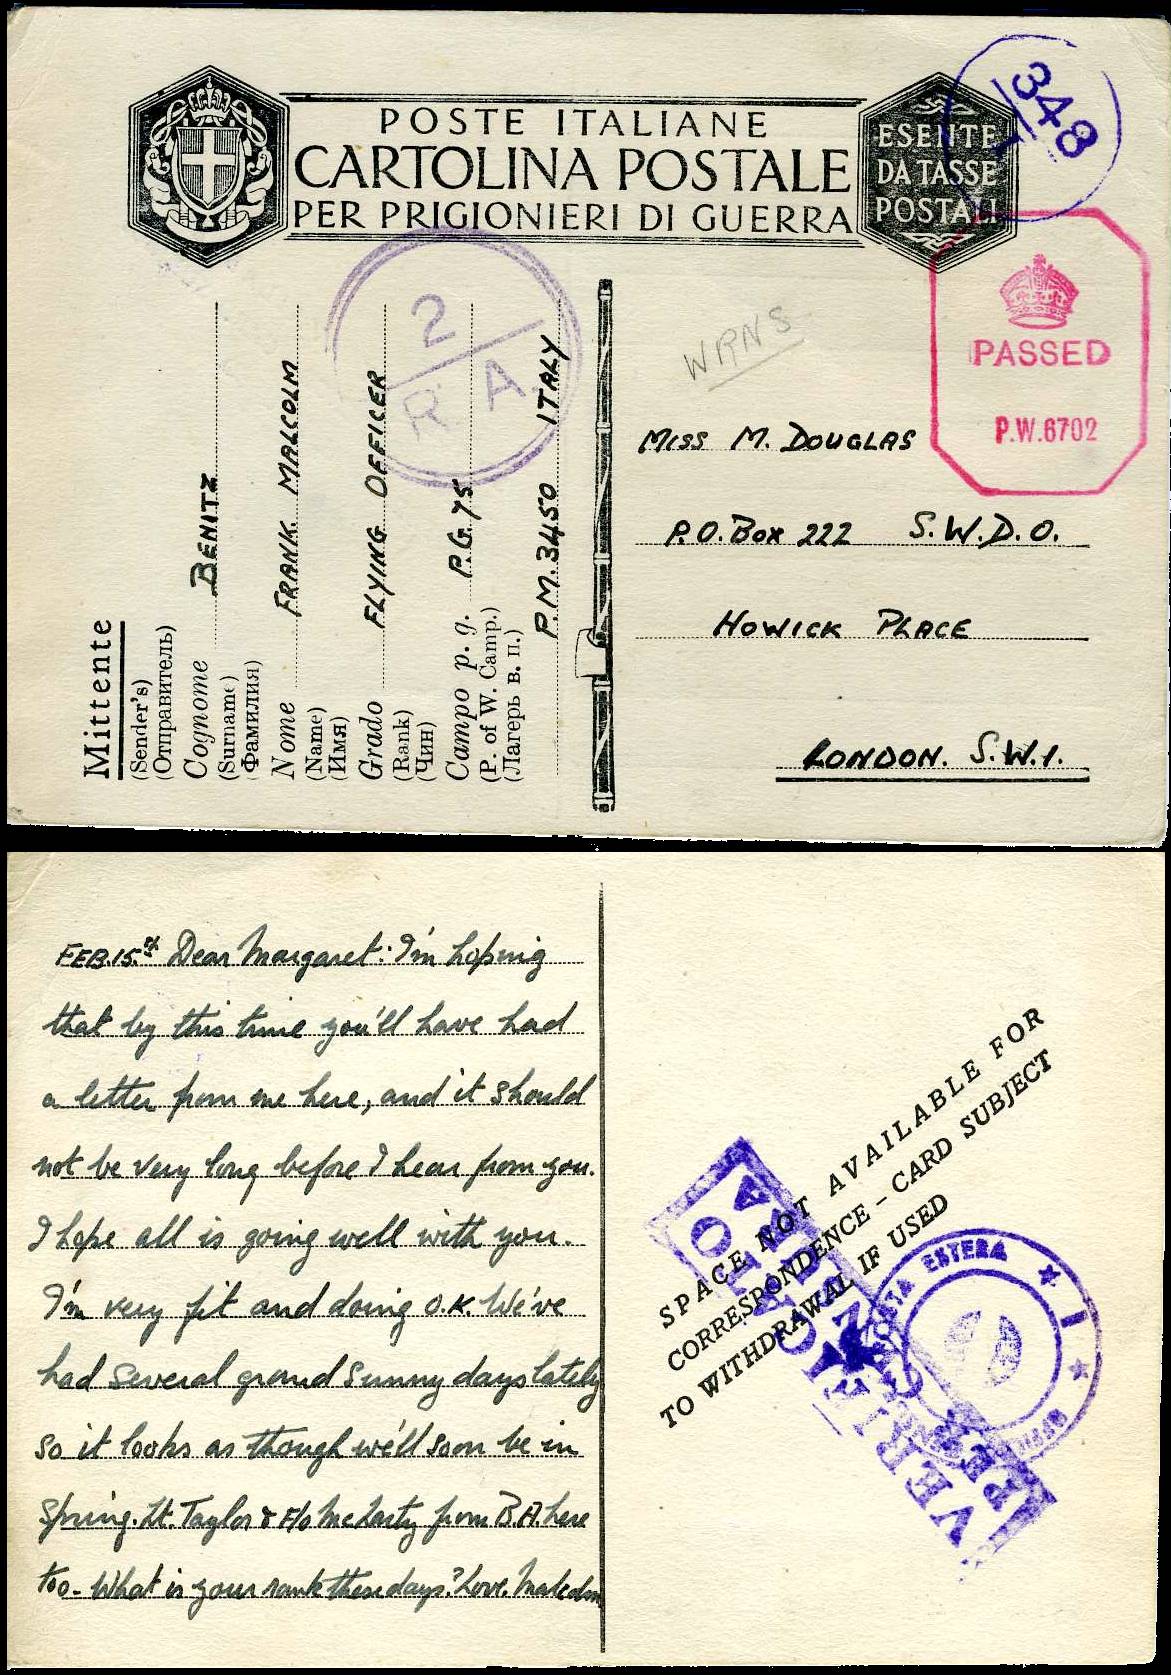 POSTE ITALIANE
CARTOLINA POSTALE
PER PRIGIONIERI DI GUERRA
ESENTE
DA TASSE
POSTALI
348
1
PASSED
P.W.6702
2
R A
WRNS
Mittente
(Sender's)
(Отправитель)
Cognome BENITZ
(Surname)
(Фамилия)
Nome FRANK MALCOLM
(Name)
(Имя)
Grado FLYING OFFICER
(Rank)
(Чин)
Campo p. g. P.G. 75
(P. of W. Camp.)
(Лагерь в. п.)
P.M. 3450 ITALY
MISS M. DOUGLAS
P.O. BOX 222 S.W.D.O.
HOWICK PLACE
LONDON. S.W.1.
FEB. 15. Dear Margaret: I'm hoping
that by this time you'll have had
a letter from me here, and it should
not be very long before I hear from you.
I hope all is going well with you.
I'm very fit and doing O.K. We've
had several grand sunny days lately
so it looks as though we'll soon be in
Spring. Lt. Taylor & F/o from B.A. here
too - What is your rank these days? Love. Malcolm
SPACE NOT AVAILABLE FOR
CORRESPONDENCE – CARD SUBJECT
TO WITHDRAWAL IF USED
VERIFICATO
PER
POSTA ESTERA
1